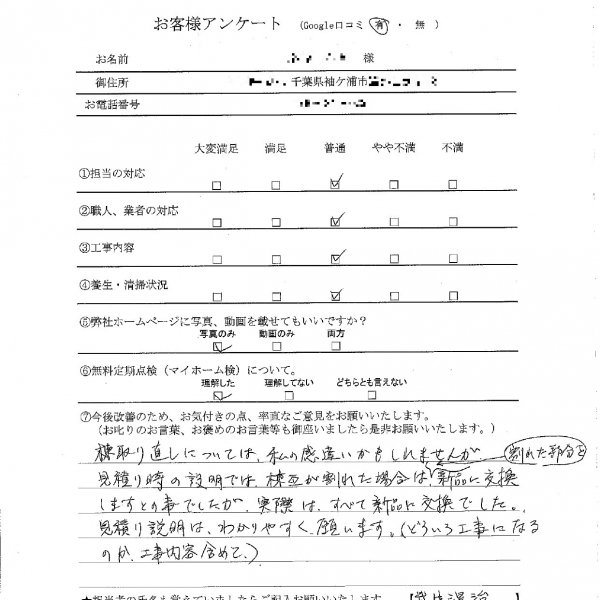 お客様アンケート （Google口コミ 有 ・ 無 ）
お名前 様
御住所 千葉県袖ケ浦市
お電話番号
大変満足 満足 普通 やや不満 不満
①担当の対応
②職人、業者の対応
③工事内容
④養生・清掃状況
⑤弊社ホームページに写真、動画を載せてもいいですか？
写真のみ 動画のみ 両方
⑥無料定期点検（マイホーム検）について。
理解した 理解してない どちらとも言えない
⑦今後改善のため、お気付きの点、率直なご意見をお願いいたします。
（お叱りのお言葉、お褒めのお言葉等も御座いましたら是非お願いいたします。）
棟取り直しについては、私の感違いかもしれませんが 割れた部分を
見積り時の説明では、棟瓦が割れた場合は新品に交換
しますとの事でしたが、実際は、すべて新品に交換でした。
見積り説明は、わかりやすく願います。（どういう工事になる
のか、工事内容含めて。）